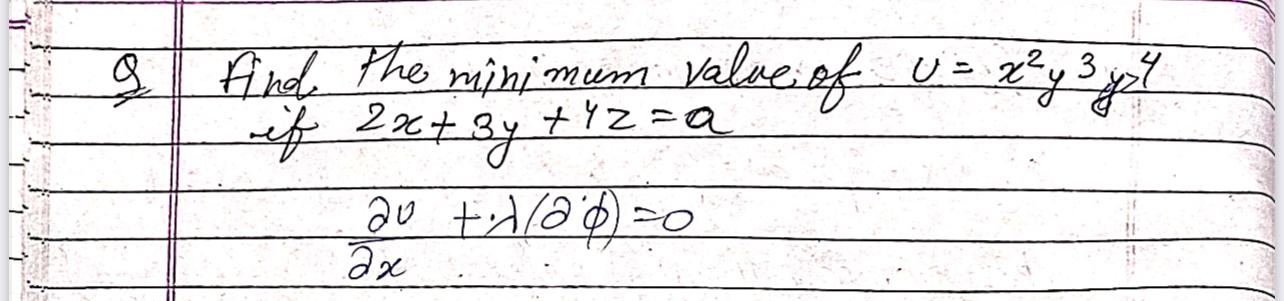 Q find the minimum value of U = x²y³z⁴
if 2x + 3y + 4z = a
∂U/∂x + λ(∂ϕ) = 0